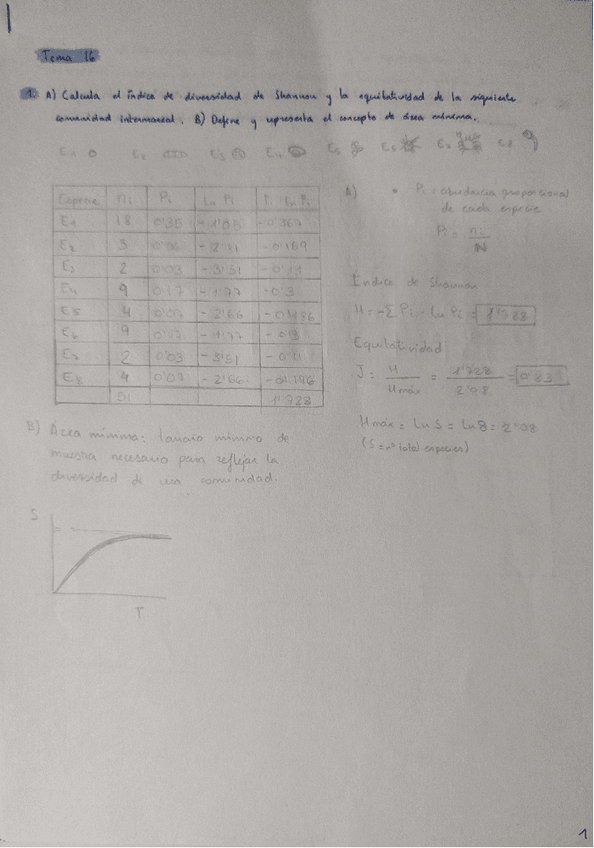 Tema 16
1. A) Calcula el índice de diversidad de Shannon y la equitatividad de la siguiente
comunidad intermareal. B) Define y representa el concepto de área mínima.
E1 E2 E3 E4 E5 E6 E7 E8
Especie ni Pi Ln Pi Pi · Ln Pi
E1 18 0'35 -1'05 -0'367
E2 3 0'06 -2'81 -0'169
E3 2 0'03 -3'51 -0'11
E4 9 0'17 -1'77 -0'3
E5 4 0'07 -2'66 -0'186
E6 9 0'17 -1'77 -0'3
E7 2 0'03 -3'51 -0'11
E8 4 0'07 -2'66
51 1'728
A) • Pi: abundancia proporcional
de cada especie
Pi = ni
N
Índice de Shannon
H = -Σ Pi · Ln Pi =
Equitatividad
J = H / Hmáx = 1'728 / 2'08 = 0'83
Hmáx = Ln S = Ln 8 = 2'08
(S = nº total especies)
B) Área mínima: tamaño mínimo de
muestra necesario para reflejar la
diversidad de una comunidad.
S
T
1